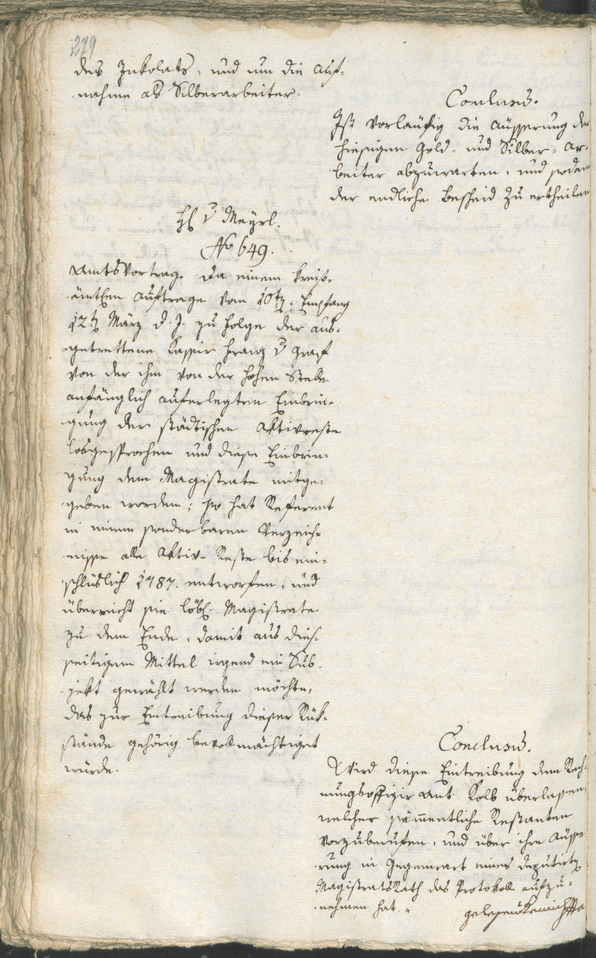 279
des Inkolats, und um die Auf-
nahme als Silberarbeiter.
Conclusum.
Ist vorläufig die Äusserung der
hiesigen Gold- und Silber-Ar-
beiter abzuwarten, und sodann
der endliche Bescheid zu ertheilen
H v Meyrl.
No 649.
Amtsvortrag. Da einem kreis-
ämtlen Auftrage vom 10ten, Empfang
12ten März d. J. zu Folge der aus-
getrettene Kassier Franz v Graf
von der ihm von der hohen Stelle
anfänglich auferlegten Einbrin-
gung der städtischen Aktivreste
losgesprochen und diese Einbrin-
gung dem Magistrate mitge-
geben worden; so hat Referent
in einem sonderbaren Verzeich-
nisse alle Aktiv-Reste bis ein-
schlüslich 1787. entworfen, und
überreicht sie löbl. Magistrate
zu dem Ende, damit aus dies-
seitigem Mittel irgend ein Sub-
jekt gewählt werden möchte,
das zur Eintreibung dieser Rük-
stände gehörig bevollmächtiget
würde.
Conclusum.
Wird diese Eintreibung dem Rech-
nungsoffizir Ant. Kolb überlassen,
welcher sämmentliche Restanten
vorzuberufen, und über ihre Äusse-
rung in Gegenwart eines Deputirten
Magistrats Rath das Protokoll aufzu-
nehmen hat.
gelesen